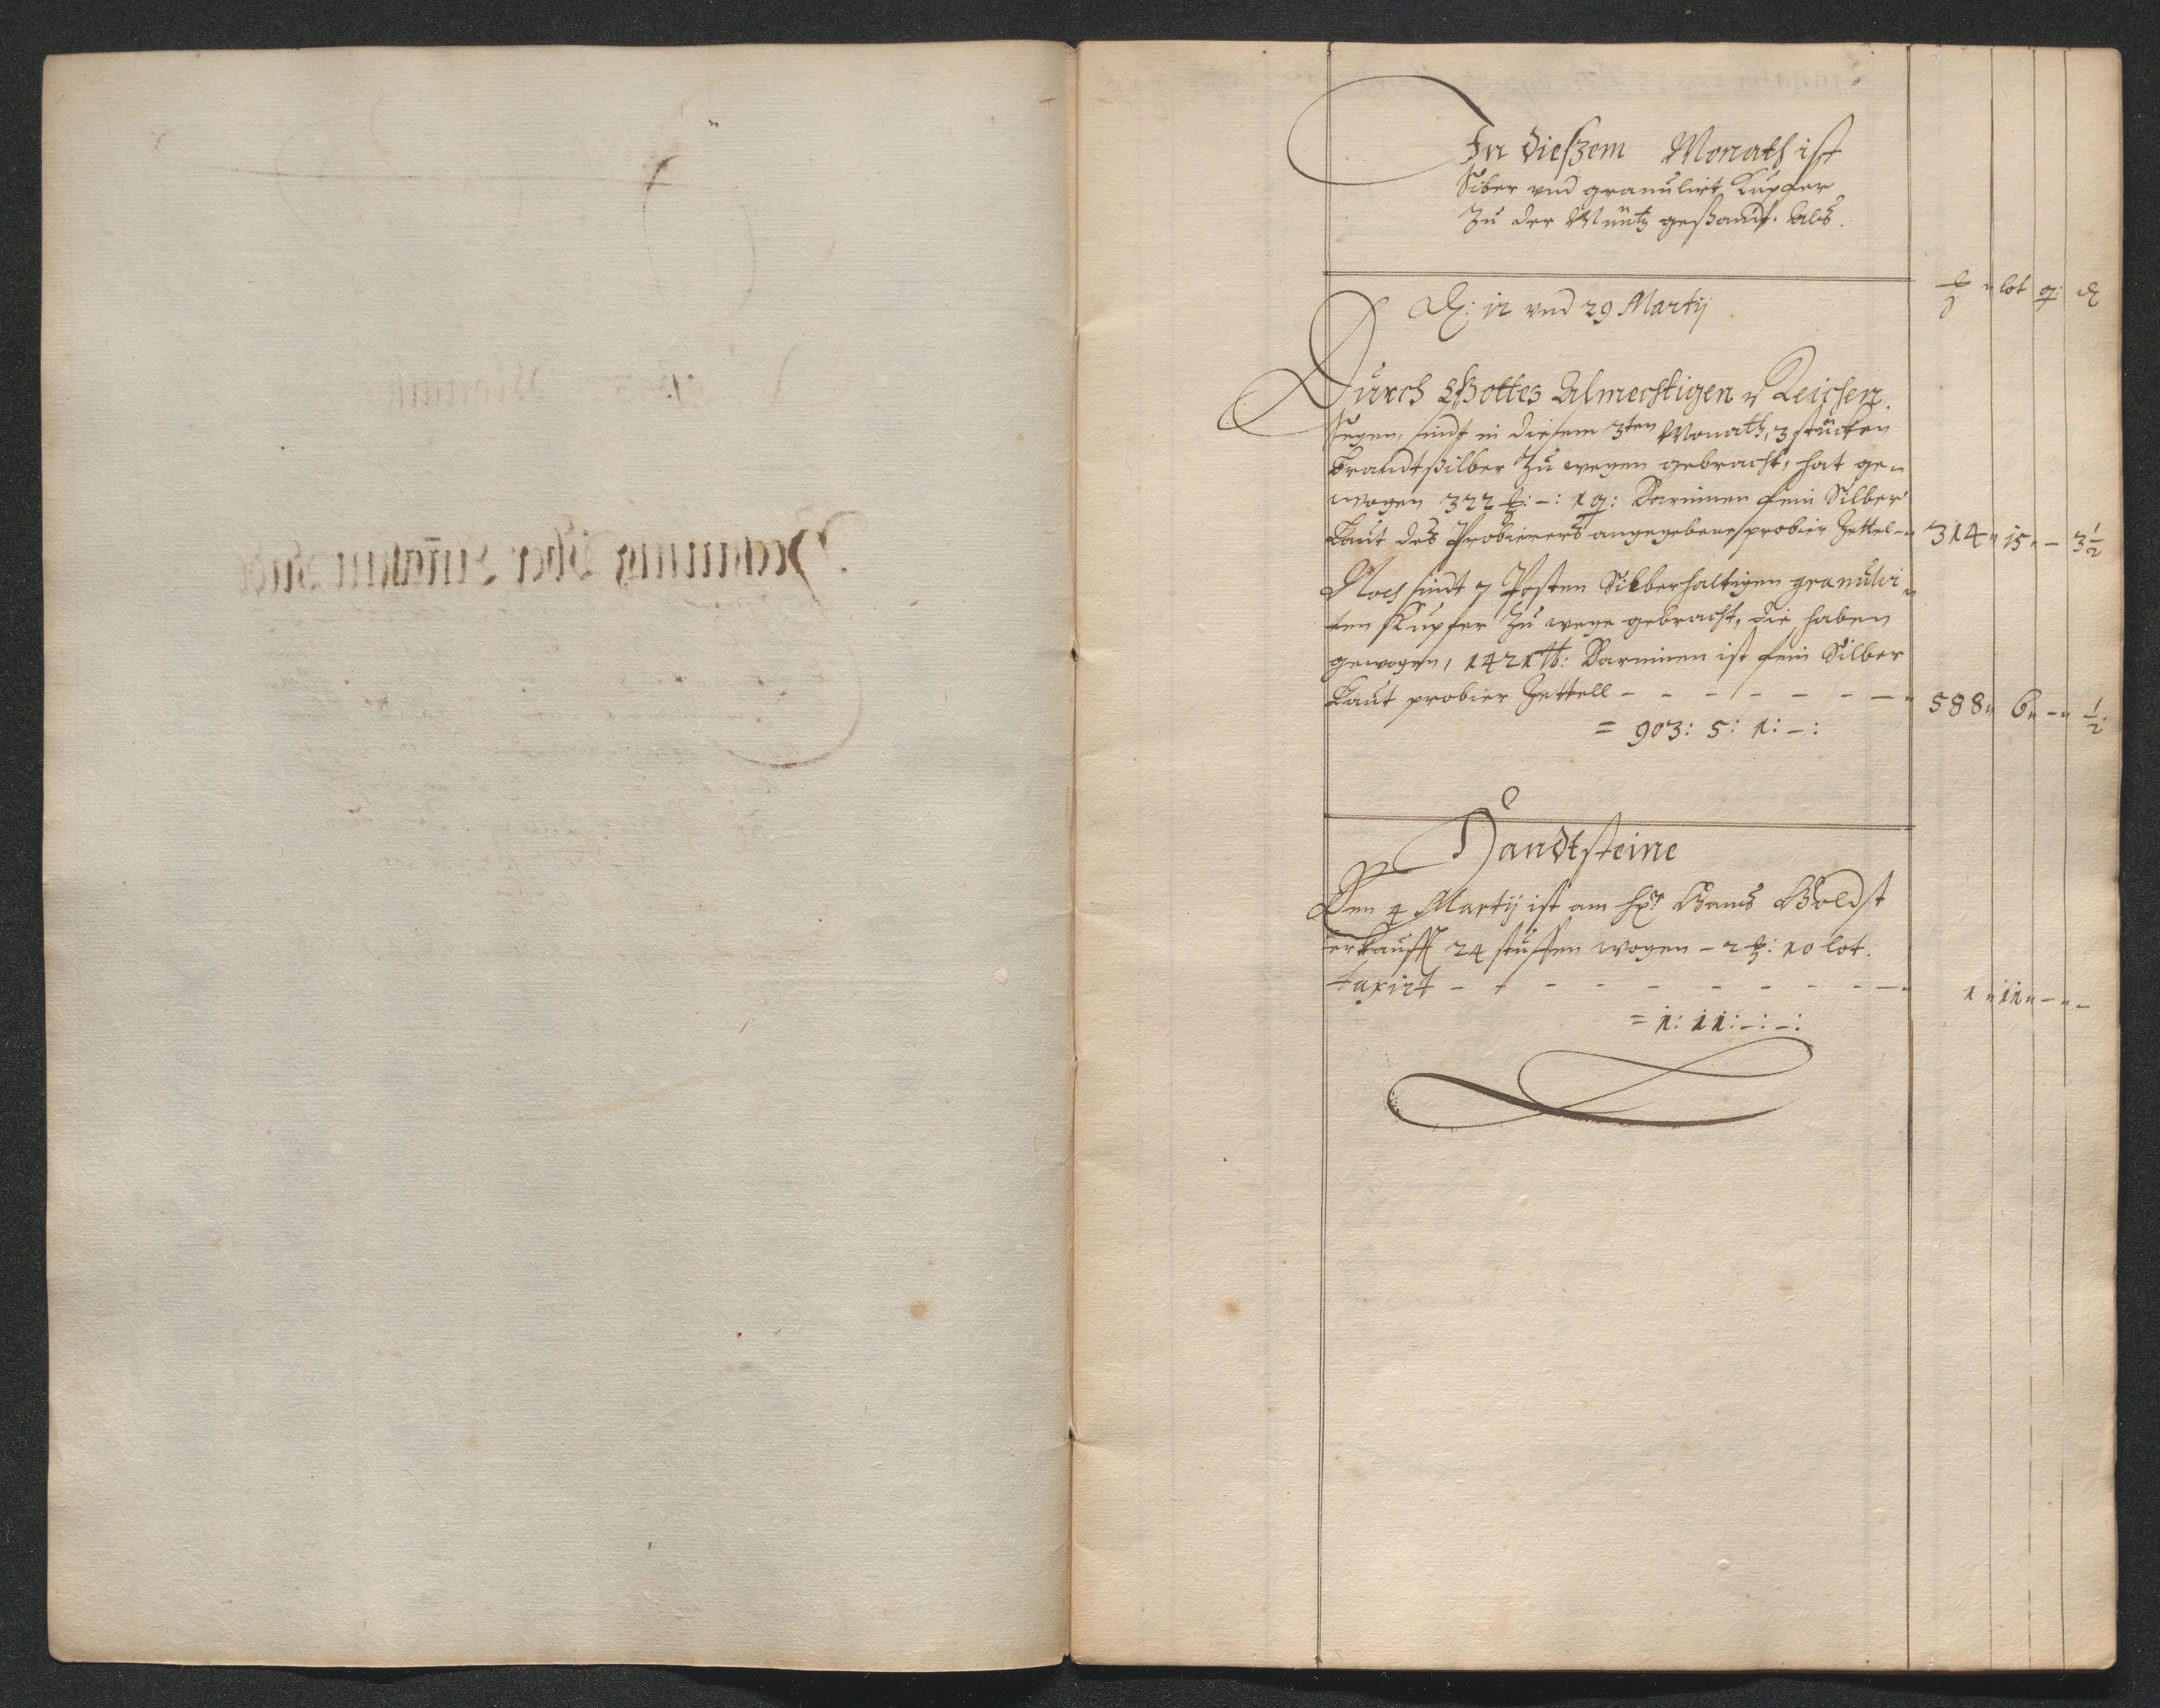 In dießem Monath ist
Silber vnd granulirt Kupfer
Zu der Müntz gesandt. Als.
mk lot q: ₰
₰: 12 vnd 29 Martij
Durch Gottes Almechtigen v Reichen
segen, sindt in diesem 3ten Monath, 3 stücken
Brandtsilber Zu wegen gebracht, hat ge-
wogen 322 mk: -: 1 q: Darinnen fein Silber
Laut des Probierers angegebene probier Zettel - 314 " 15 " - 3½
Noch sindt 7 Posten Silberhaltigen granulir-
ten Kupfer Zu wege gebracht, die haben
gewogen, 1421 ℔: Darinnen ist fein Silber
Laut probier Zettell - - - - - - - 588 " 6 " - " ½
= 903: 5: 1: -:
Handtsteine
Den 4 Martij ist am Hans Boldst
verkaufft 24 stuffen wogen - 2 mk: 10 lot.
taxirt - - - - - - - - - 1 " 11 " - " -
= 1: 11: -: -: